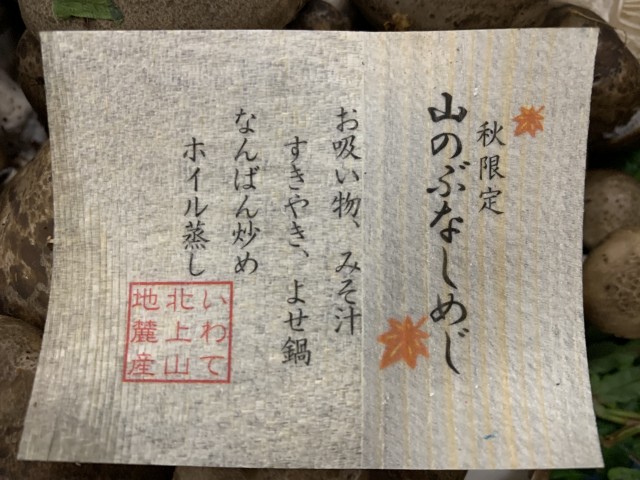 秋限定
山のぶなしめじ
お吸い物、みそ汁
すきやき、よせ鍋
なんばん炒め
ホイル蒸し
いわて
北上山
地麓産